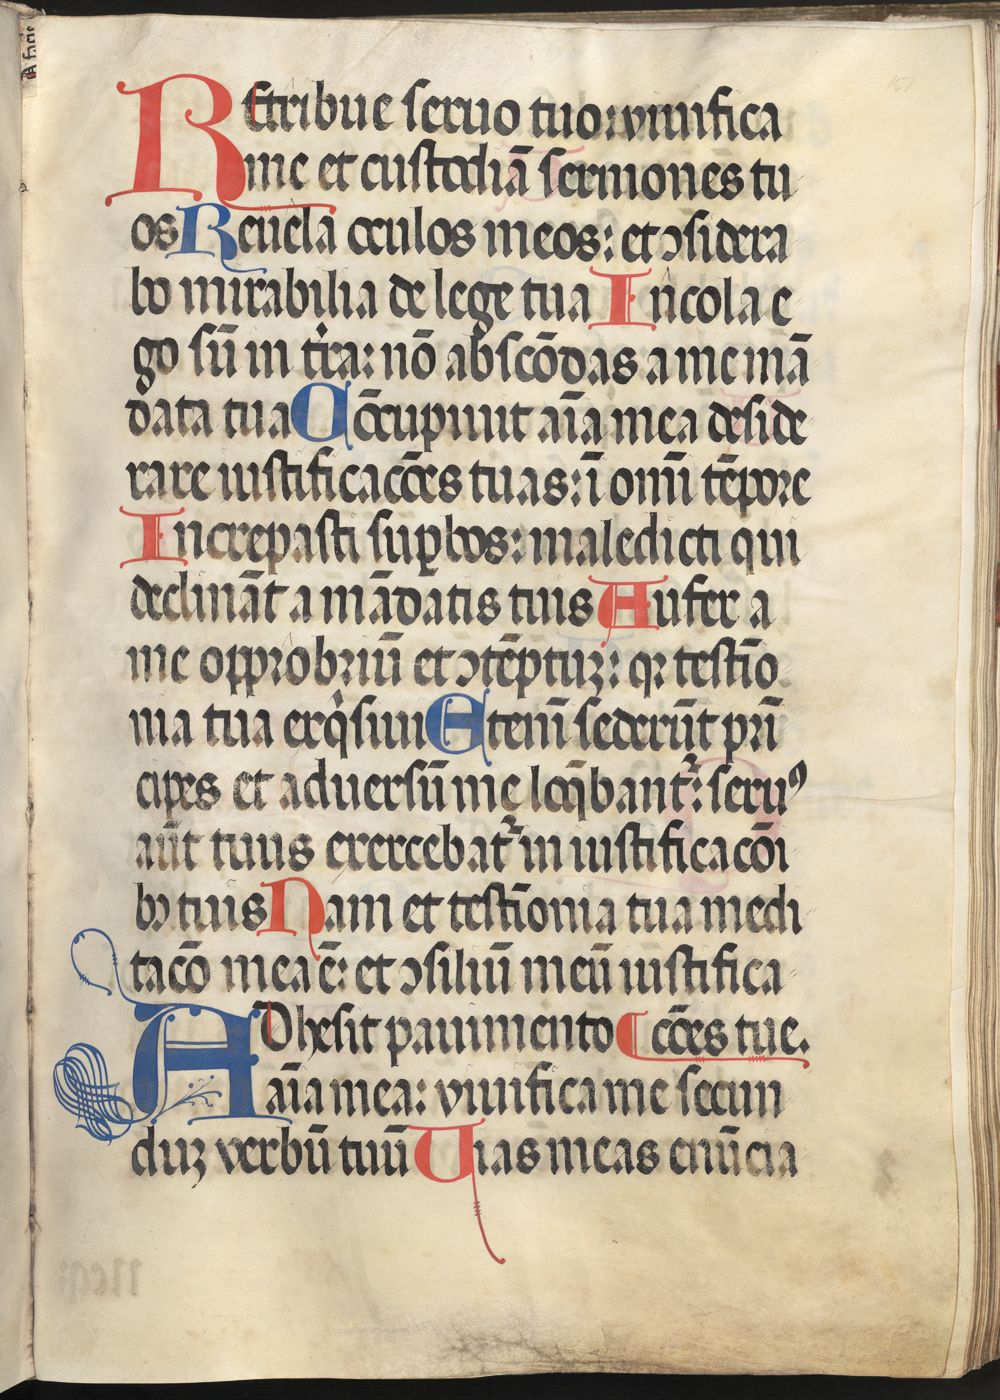 Retribue seruo tuo: viuifica
me et custodiā sermones tu
os Reuela oculos meos: et ɔsidera
bo mirabilia de lege tua Incola e
go sū in tr̄a: nō abscōdas a me mā
data tua Cōcupiuit aīa mea deside
rare iustificacōes tuas: ī om̄i tēpore
Increpasti suꝑbos: maledicti qui
declināt a mādatis tuis Aufer a
me opprobriū et ɔtēptuꝫ: qꝛ testīo
nia tua exqͥsiui Etenī sederūt prī
cipes et aduersū me loq̄bant᷑: seruꝰ
aūt tuus exercebat᷑ in iustificacōi
bꝫ tuis Nam et testīonia tua medi
tacō mea ē: et ɔsiliū meū iustifica
cōes tue.
ADhesit pauimento
aīa mea: viuifica me secun
duꝫ verbū tuū Uias meas enūcia